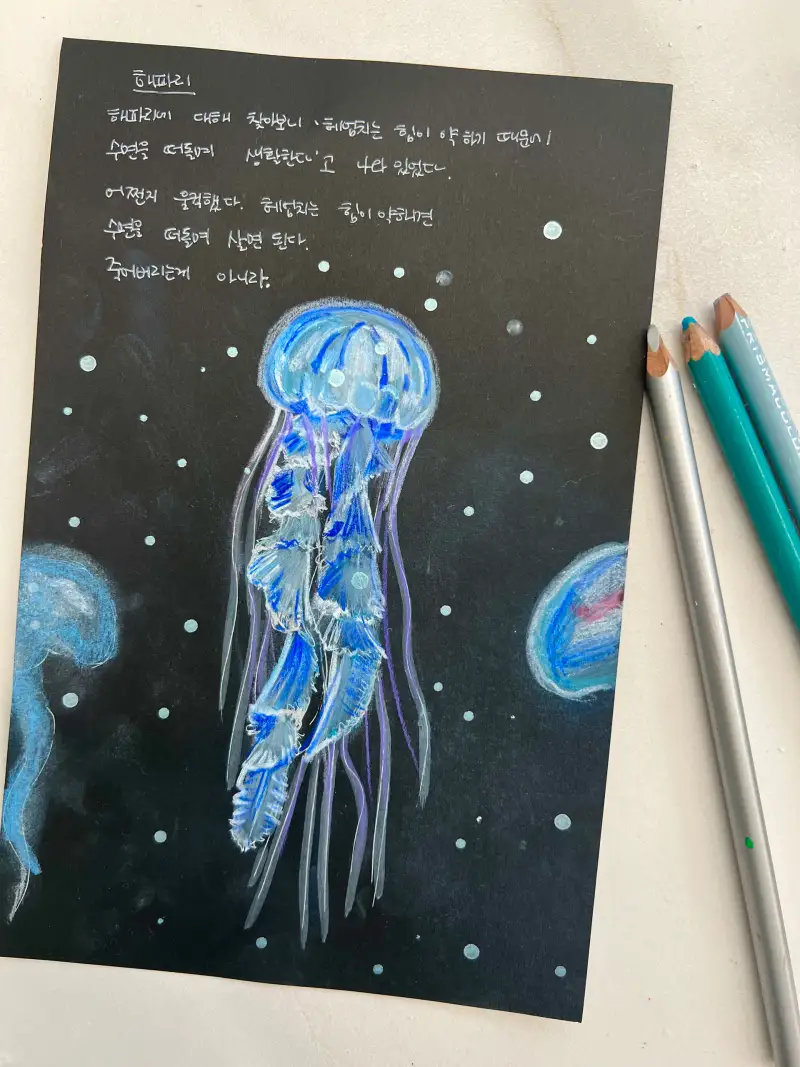 해파리
해파리에 대해 찾아보니 '헤엄치는 힘이 약하기 때문에
수면을 떠돌며 생활한다'고 나와 있었다.
어쩐지 울컥했다. 헤엄치는 힘이 약하면
수면을 떠돌며 살면 된다.
죽어버리는게 아니라.
PRISMACOLO